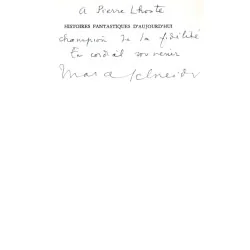 A Pierre Lhoste
HISTOIRES FANTASTIQUES D'AUJOURD'HUI
champion de la fidélité
En cordial souvenir
Marcel Schneider